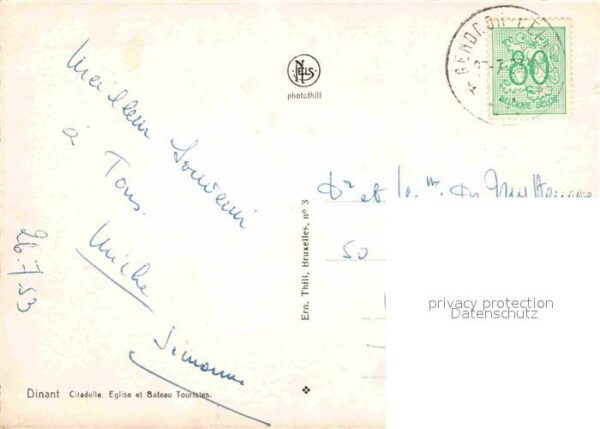 Meilleur Souvenir
à Tous.
Miche
Simonne
26/7/53
Dinant Citadelle, Eglise et Bateau Touristes.
NELS
photothill
Ern. Thill, Bruxelles, nº 3
GENDRON
80
BELGIQUE BELGIE
et
50
privacy protection
Datenschutz